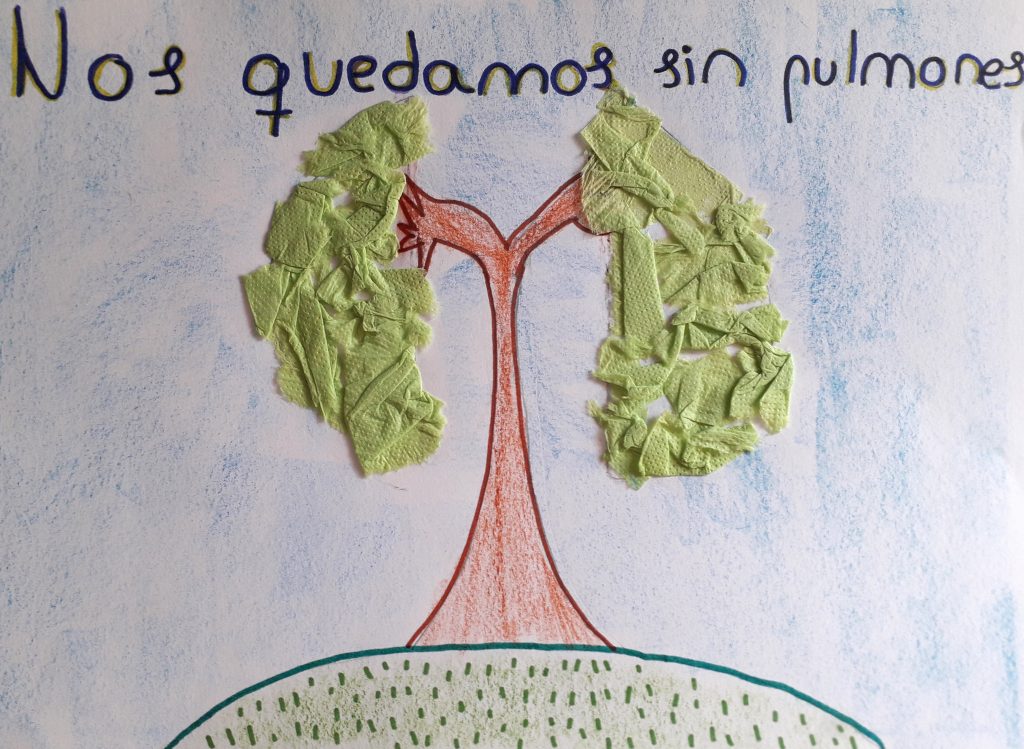 Nos quedamos sin pulmones